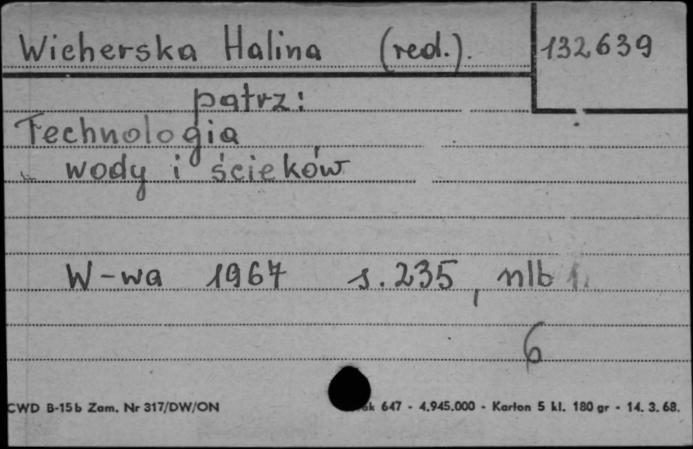 Wicherska Halina (red.). 132639
patrz:
Technologia
wody i ścieków
W-wa 1967 s. 235, nlb 1.
6
CWD B-15b Zam. Nr 317/DW/ON 647 - 4.945.000 - Karton 5 kl. 180 gr - 14. 3. 68.